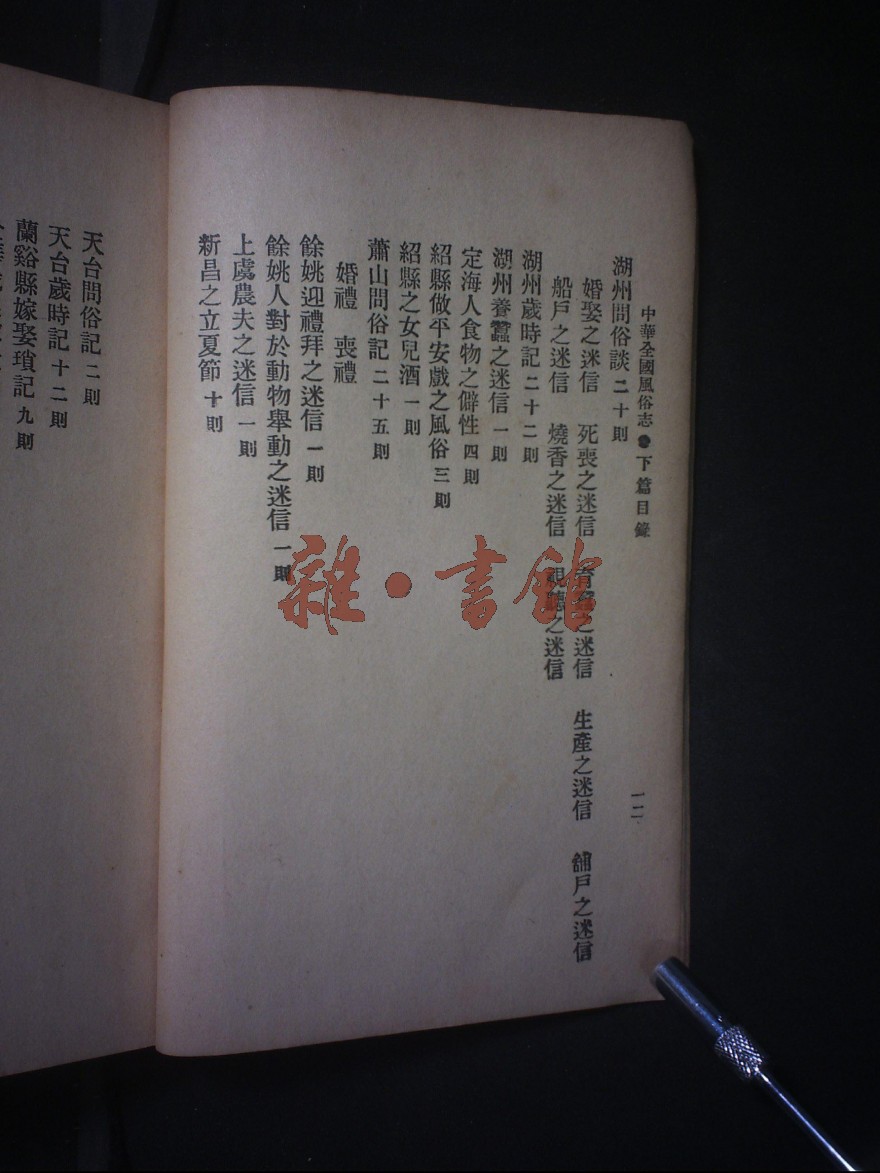 中華全國風俗志 ● 下篇目錄
一二
湖州問俗談 二十則
婚娶之迷信 死喪之迷信 育蠶之迷信 生產之迷信 舖戶之迷信
船戶之迷信 燒香之迷信 視聽之迷信
湖州歲時記 二十二則
湖州養蠶之迷信 一則
定海人食物之僻性 四則
紹縣做平安戲之風俗 三則
紹縣之女兒酒 一則
蕭山問俗記 二十五則
婚禮 喪禮
餘姚迎禮拜之迷信 一則
餘姚人對於動物舉動之迷信 一則
上虞農夫之迷信 一則
新昌之立夏節 十則
天台問俗記 二則
天台歲時記 十二則
蘭谿縣嫁娶瑣記 九則
雜·書館